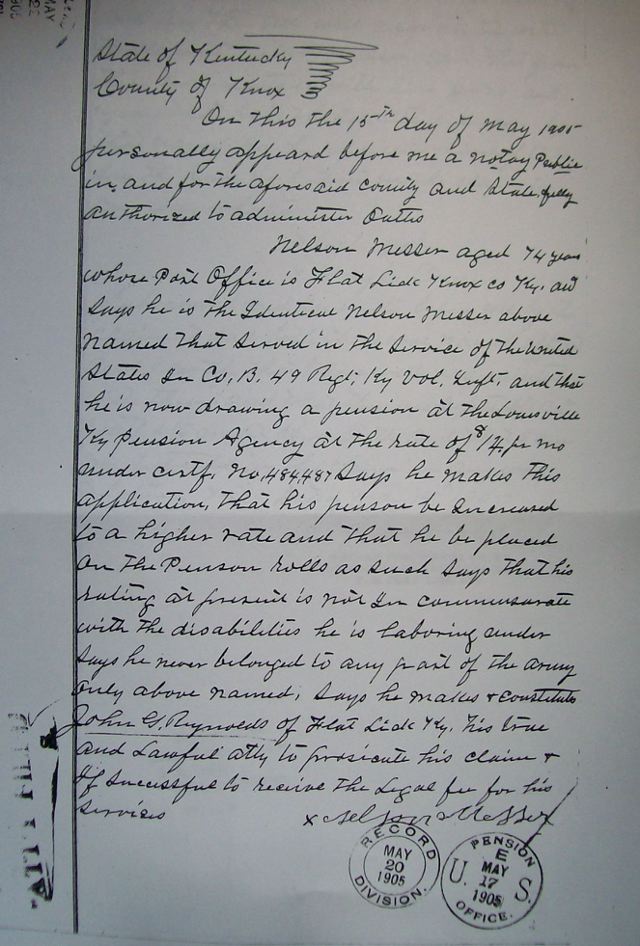 State of Kentucky
County of Knox
On this the 15th day of May 1905
personally appeard before me a notay Public
in, and for the aforesaid county and State, fully
authorized to administer Oaths
Nelson Messer aged 74 years
whose Post Office is Flat Lick Knox co Ky. and
Says he is the Identical Nelson Messer above
named that Served in the Service of the United
States In Co, B. 49 Regt, Ky Vol, Inft, and that
he is now drawing a pension at the Louisville
Ky Pension Agency at the rate of $ pr mo
under certf. No. 484,487 Says he makes this
application, that his penson be Increased
to a higher rate and that he be placed
on the Penson rolls as such Says that his
rating at present is not In commensurate
with the disabilities he is laboring under
Says he never belonged to any part of the army
only above named, Says he makes + Constitute
John G. Reynolds of Flat Lick Ky, his true
and Lawful atty to prosicute his claim +
If Successful to receive the Legal fee for his
Services
x Nelson Messer
RECORD
MAY
20
1905
DIVISION.
PENSION
E
MAY
U. 17 S.
1905
OFFICE.
MAY
22